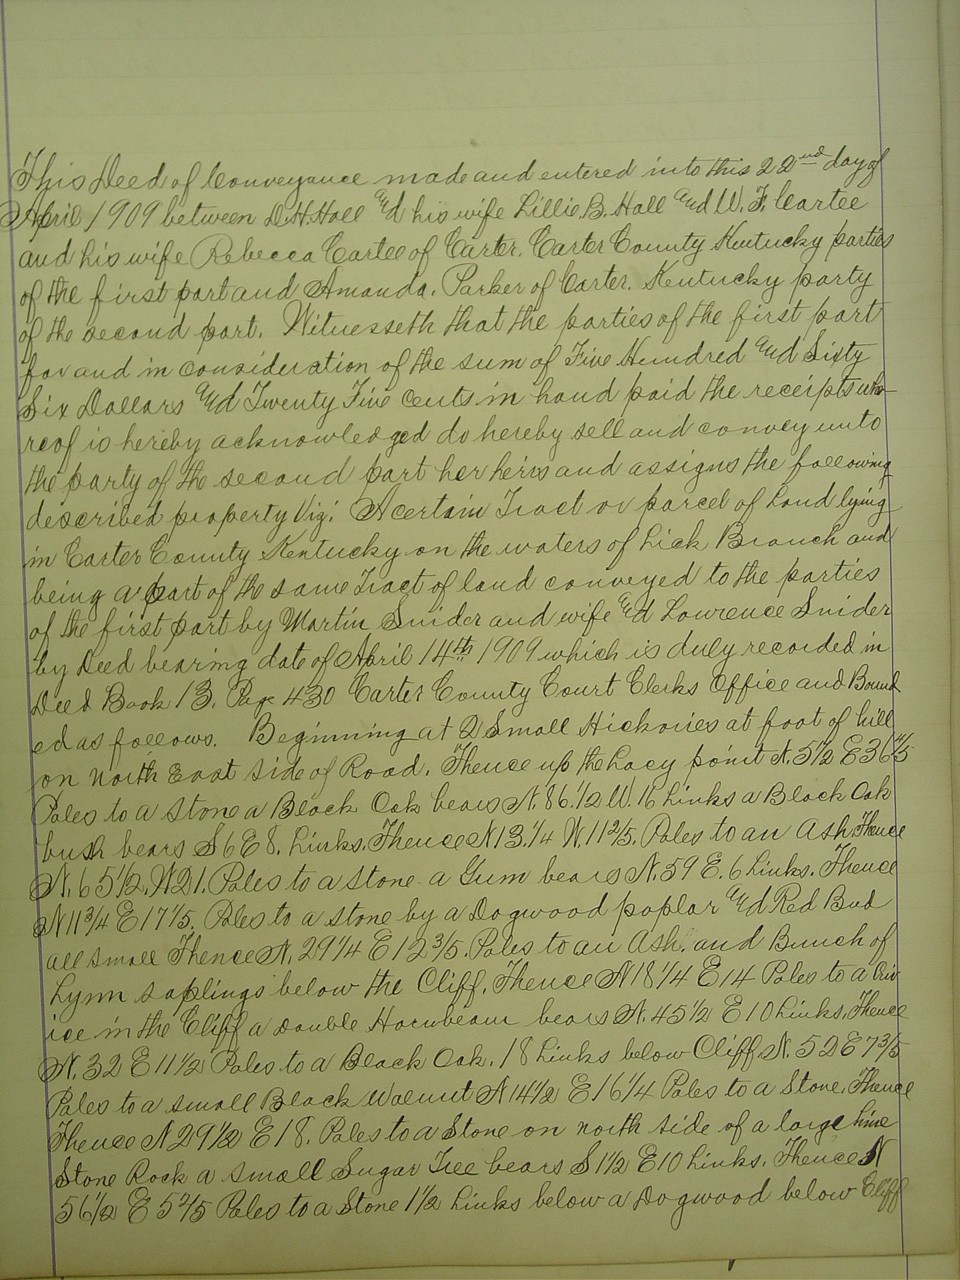 This Deed of Conveyance made and entered into this 22nd day of
April 1909 between D.H. Hall and his wife Lillie B. Hall and W. F. Cartee
and his wife Rebecca Cartee of Carter, Carter County Kentucky parties
of the first part and Amanda. Parker of Carter. Kentucky party
of the second part. Witnesseth that the parties of the first part
for and in consideration of the sum of Five Hundred and Sixty
Six Dollars and Twenty Five cents in hand paid the receipts whe-
reof is hereby acknowledged do hereby sell and convey unto
the party of the second part her heirs and assigns the following
described property Viz: A certain Tract or parcel of Land lying
in Carter County Kentucky on the waters of Lick Branch and
being a part of the same Tract of land conveyed to the parties
of the first part by Martin Snider and wife and Lawrence Snider
by Deed bearing date of April 14th 1909 which is duly recorded in
Deed Book 13. Page 430 Carter County Court Clerks Office and Bound
ed as follows. Beginning at 2 Small Hickories at foot of hill
on north East side of Road. Thence up the point N. 5 1/2 E 36 4/5
Poles to a Stone a Black Oak bears N. 86. 1/2 W. 16 Links a Black Oak
bush bears S 6 E 8. Links. Thence N 13. 1/4 W. 11 2/5. Poles to an Ash Thence
N. 65 1/2. W 21. Poles to a Stone a Gum bears N. 59 E. 6 Links. Thence
N 11 3/4 E 17 1/5. Poles to a stone by a Dogwood poplar and Red Bud
all small Thence N. 29 1/4 E 12 3/5. Poles to an Ash. and Bunch of
Lynn saplings below the Cliff. Thence N 18 1/4 E 14 Poles to a
in the Cliff a Double Hornbeam bears N. 45 1/2 E 10 Links. Thence
N. 32 E 11 1/2 Poles to a Black Oak. 18 Links below Cliff N. 52 E 7 3/5
Poles to a small Black Walnut N 14 1/2 E 16 1/4 Poles to a Stone. Thence
Thence N 29 1/2 E 18. Poles to a Stone on north side of a large Lime
Stone Rock a small Sugar Tree bears S 1 1/2 E 10 Links. Thence N
56 1/2 E 5 2/5 Poles to a Stone 1 1/2 Links below a Dogwood below Cliff